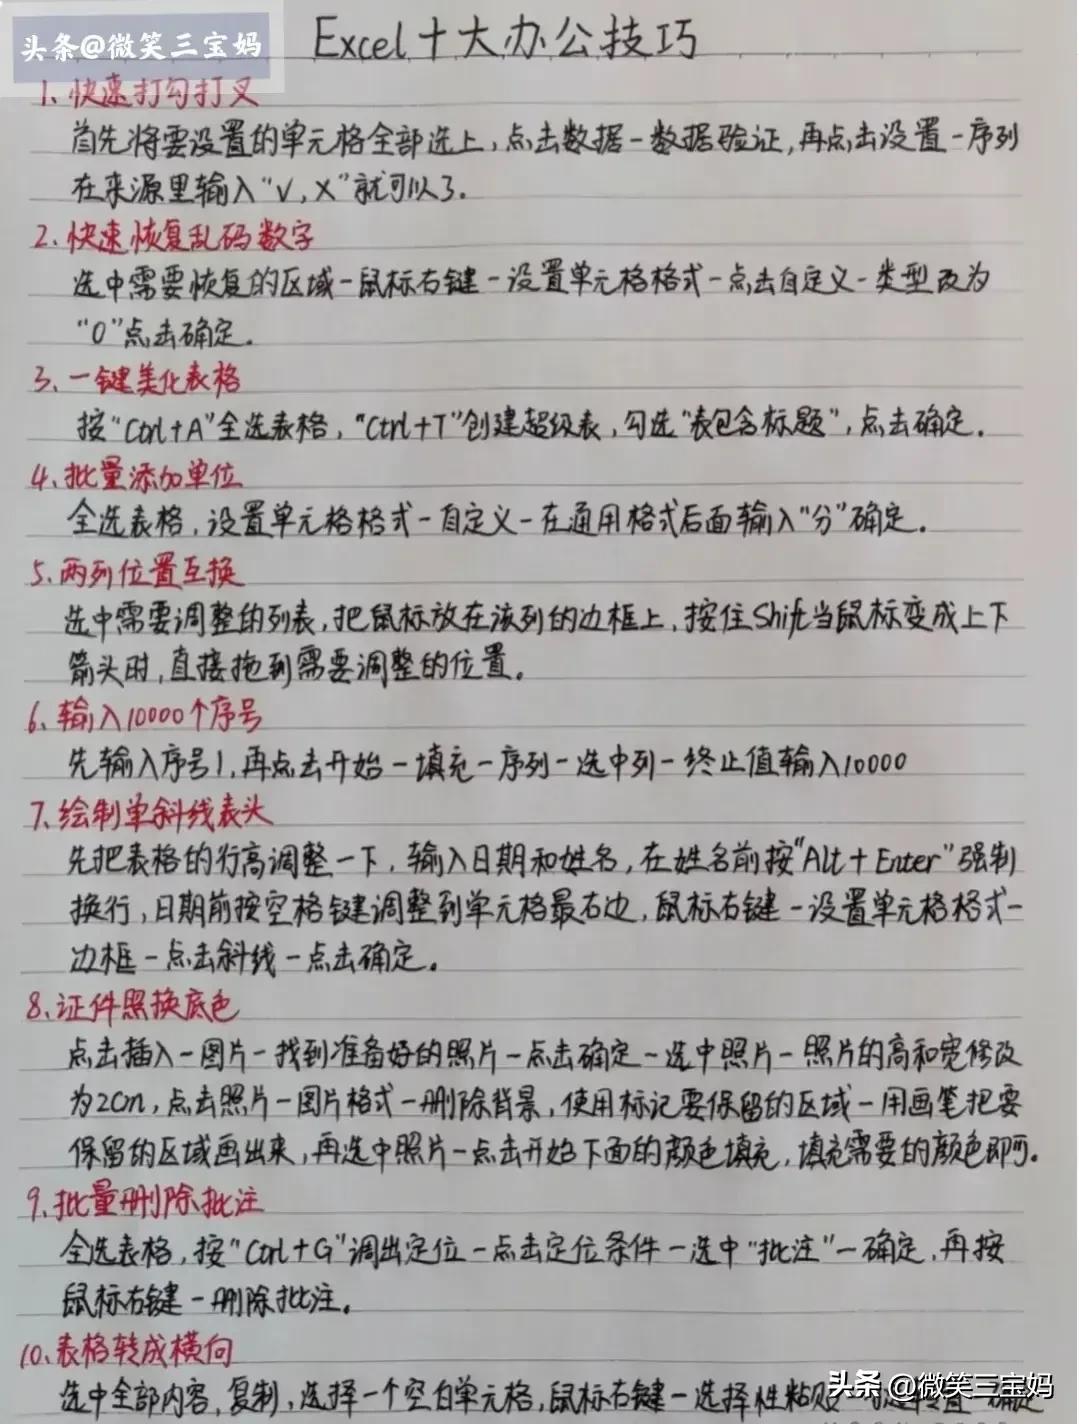 头条@微笑三宝妈
Excel十大办公技巧
1、快速打勾打叉
首先将需设置的单元格全部选上,点击数据-数据验证,再点击设置-序列
在来源里输入“√,X”就可以了.
2、快速恢复乱码数字
选中需要恢复的区域-鼠标右键-设置单元格格式-点击自定义-类型改为
“0”点击确定.
3、一键美化表格
按“Ctrl+A”全选表格,“Ctrl+T”创建超级表,勾选“表包含标题”,点击确定.
4、批量添加单位
全选表格,设置单元格格式-自定义-在通用格式后面输入“分”确定.
5、两列位置互换
选中需要调整的列表,把鼠标放在该列的边框上,按住Shift当鼠标变成上下
箭头时,直接拖到需要调整的位置。
6、输入10000个序号
先输入序号1,再点击开始-填充-序列-选中列-终止值输入10000
7、绘制单斜线表头
先把表格的行高调整一下,输入日期和姓名,在姓名前按“Alt+Enter”强制
换行,日期前按空格键调整到单元格最右边,鼠标右键-设置单元格格式-
边框-点击斜线-点击确定。
8、证件照换底色
点击插入-图片-找到准备好的照片-点击确定-选中照片-照片的高和宽修改
为2cm,点击照片-图片格式-删除背景,使用标记要保留的区域-用画笔把要
保留的区域画出来,再选中照片-点击开始下面的颜色填充,填充需要的颜色即可.
9、批量删除批注
全选表格,按“Ctrl+G”调出定位-点击定位条件-选中“批注”-确定,再按
鼠标右键-删除批注。
10、表格转成横向
选中全部内容,复制,选择一个空白单元格,鼠标右键-选择性粘贴
头条@微笑三宝妈